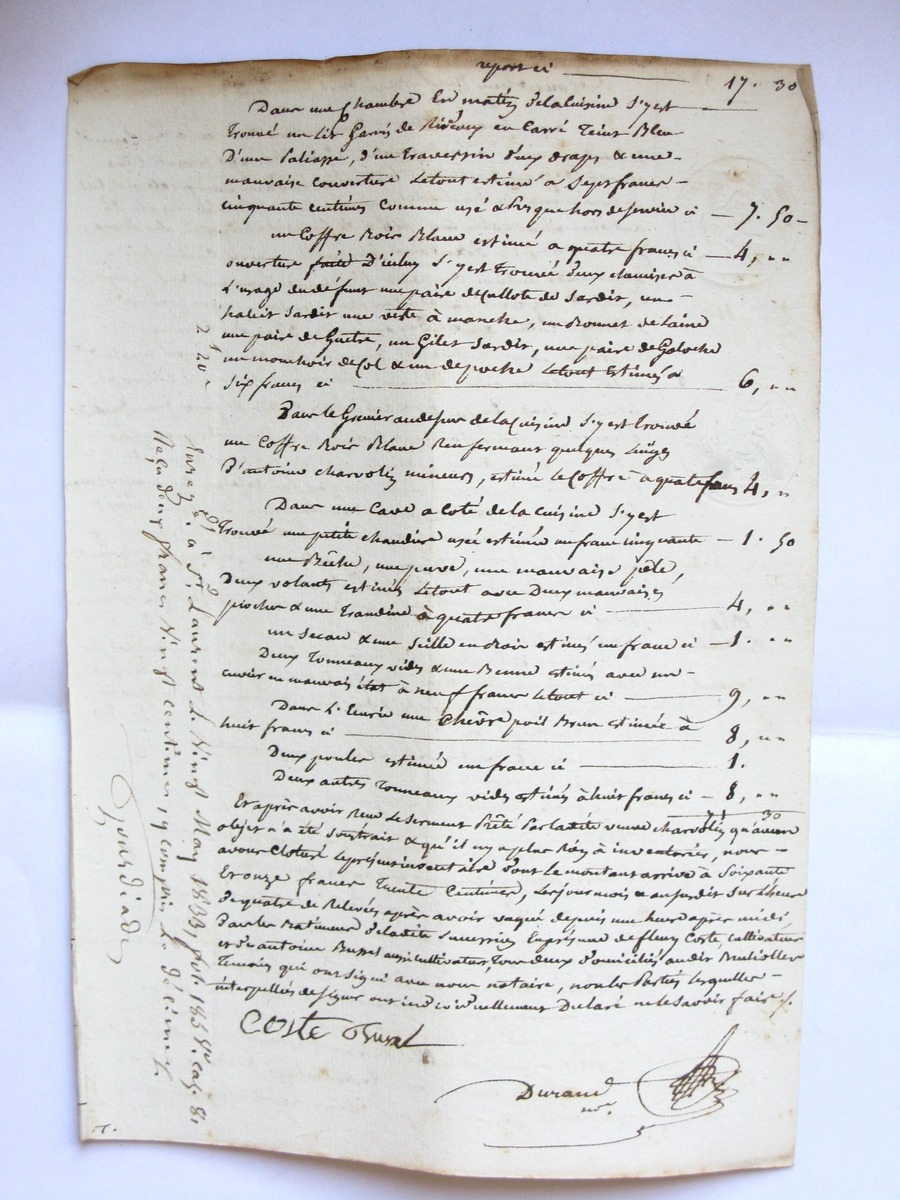 report ci 17. 30
Dans une chambre En matin de la cuisine s'y est
trouvé un lit Garni de Rideaux en Carré teint Bleu
D'une Paliasse, d'un traversin deux draps & une
mauvaise couverture le tout estimé a sept francs
cinquante centimes comme usé & presque hors de servir ci — 7. 50
un Coffre Bois Blanc estimé a quatre francs ci — 4, " "
ouverture faite D'icelui s'y est trouvé deux chemises à
l'usage du défunt une paire de culotte de sardit, un
habit sardit une veste à manche, un Bonnet de laine
une paire de Guetre, un Gilet sardit, une paire de Galoche
un mouchoir de Col & un de poche le tout Estimés a
six francs ci 6, " "
Dans le Grenier au dessus de la Cuisine s'y est trouvé
un Coffre Bois Blanc Renfermant quelques Linges
D'antoine charvolin mineur, estimé le Coffre a quatre francs 4, "
Dans une Cave a coté de la cuisine s'y est
trouvé une petite chaudière usée estimée un franc cinquante — 1. 50
une Bêche, une mauvaise pêle,
Deux volants estimés le tout avec Deux mauvaises
pioches & une à quatre francs ci 4, " "
un Seau & une Seille en Bois estimés un franc ci — 1. " "
Deux Tonneaux vides & une Benne estimés avec un
cuvier en mauvais état à neuf francs le tout ci 9, " "
Dans l'Ecurie une Chèvre poil Brun estimée à
huit francs ci 8, " "
Deux poules estimée un franc ci 1.
Deux autres Tonneaux vides estimés à huit francs ci — 8, " "
71 30
Et après avoir Reçu le Serment Prêté Par ladite veuve charvolin qu'aucun
objet n'a été soustrait & qu'il n'y a plus Rien à inventorier, nous
avons Cloturé le présent inventaire dont le montant arrive à Soixante
et onze francs Trente Centimes, les jour mois & an susdit sur l'heure
de quatre de Relevée après avoir vaqué depuis une heure après midi,
Dans les Batiments de ladite Succession En présence de fleury Coste, Cultivateur
et d'antoine Brussel aussi cultivateur, Tous deux Domiciliés audit
Témoins qui ont signé avec nous notaire, non les Parties lesquelles
interpellés de signer ont individuellement Déclaré ne le savoir faire ./.
COSTE Brussel
Durand
nre.
2 f 20 c
Enregé. à St. Laurent le Vingt May 1833, fol. 185 vo. cas. 8.
Reçu deux francs Vingt centimes y compris le décime ./.